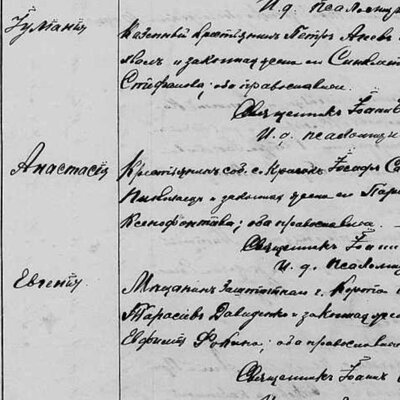 И. д. Псаломщ
Іуманія
Казенный крестьянинъ Петръ
и законная жена его Синклит
Стефанова; оба православнаго.
Священникъ Іоаннъ
И. д. псаломщи
Анастасія
Крестьянинъ соб. с. Іосифъ
и законная жена его Пар
Ксенофонтова; оба православнаго.
Священникъ Іоанн
И. д. Псаломщ
Евгенія
Мѣщанинъ заштатнаго г. Корота
Тарасіевъ Давиденко и законная
Евфимія Фокина; оба православнаго
Священникъ Іоаннъ